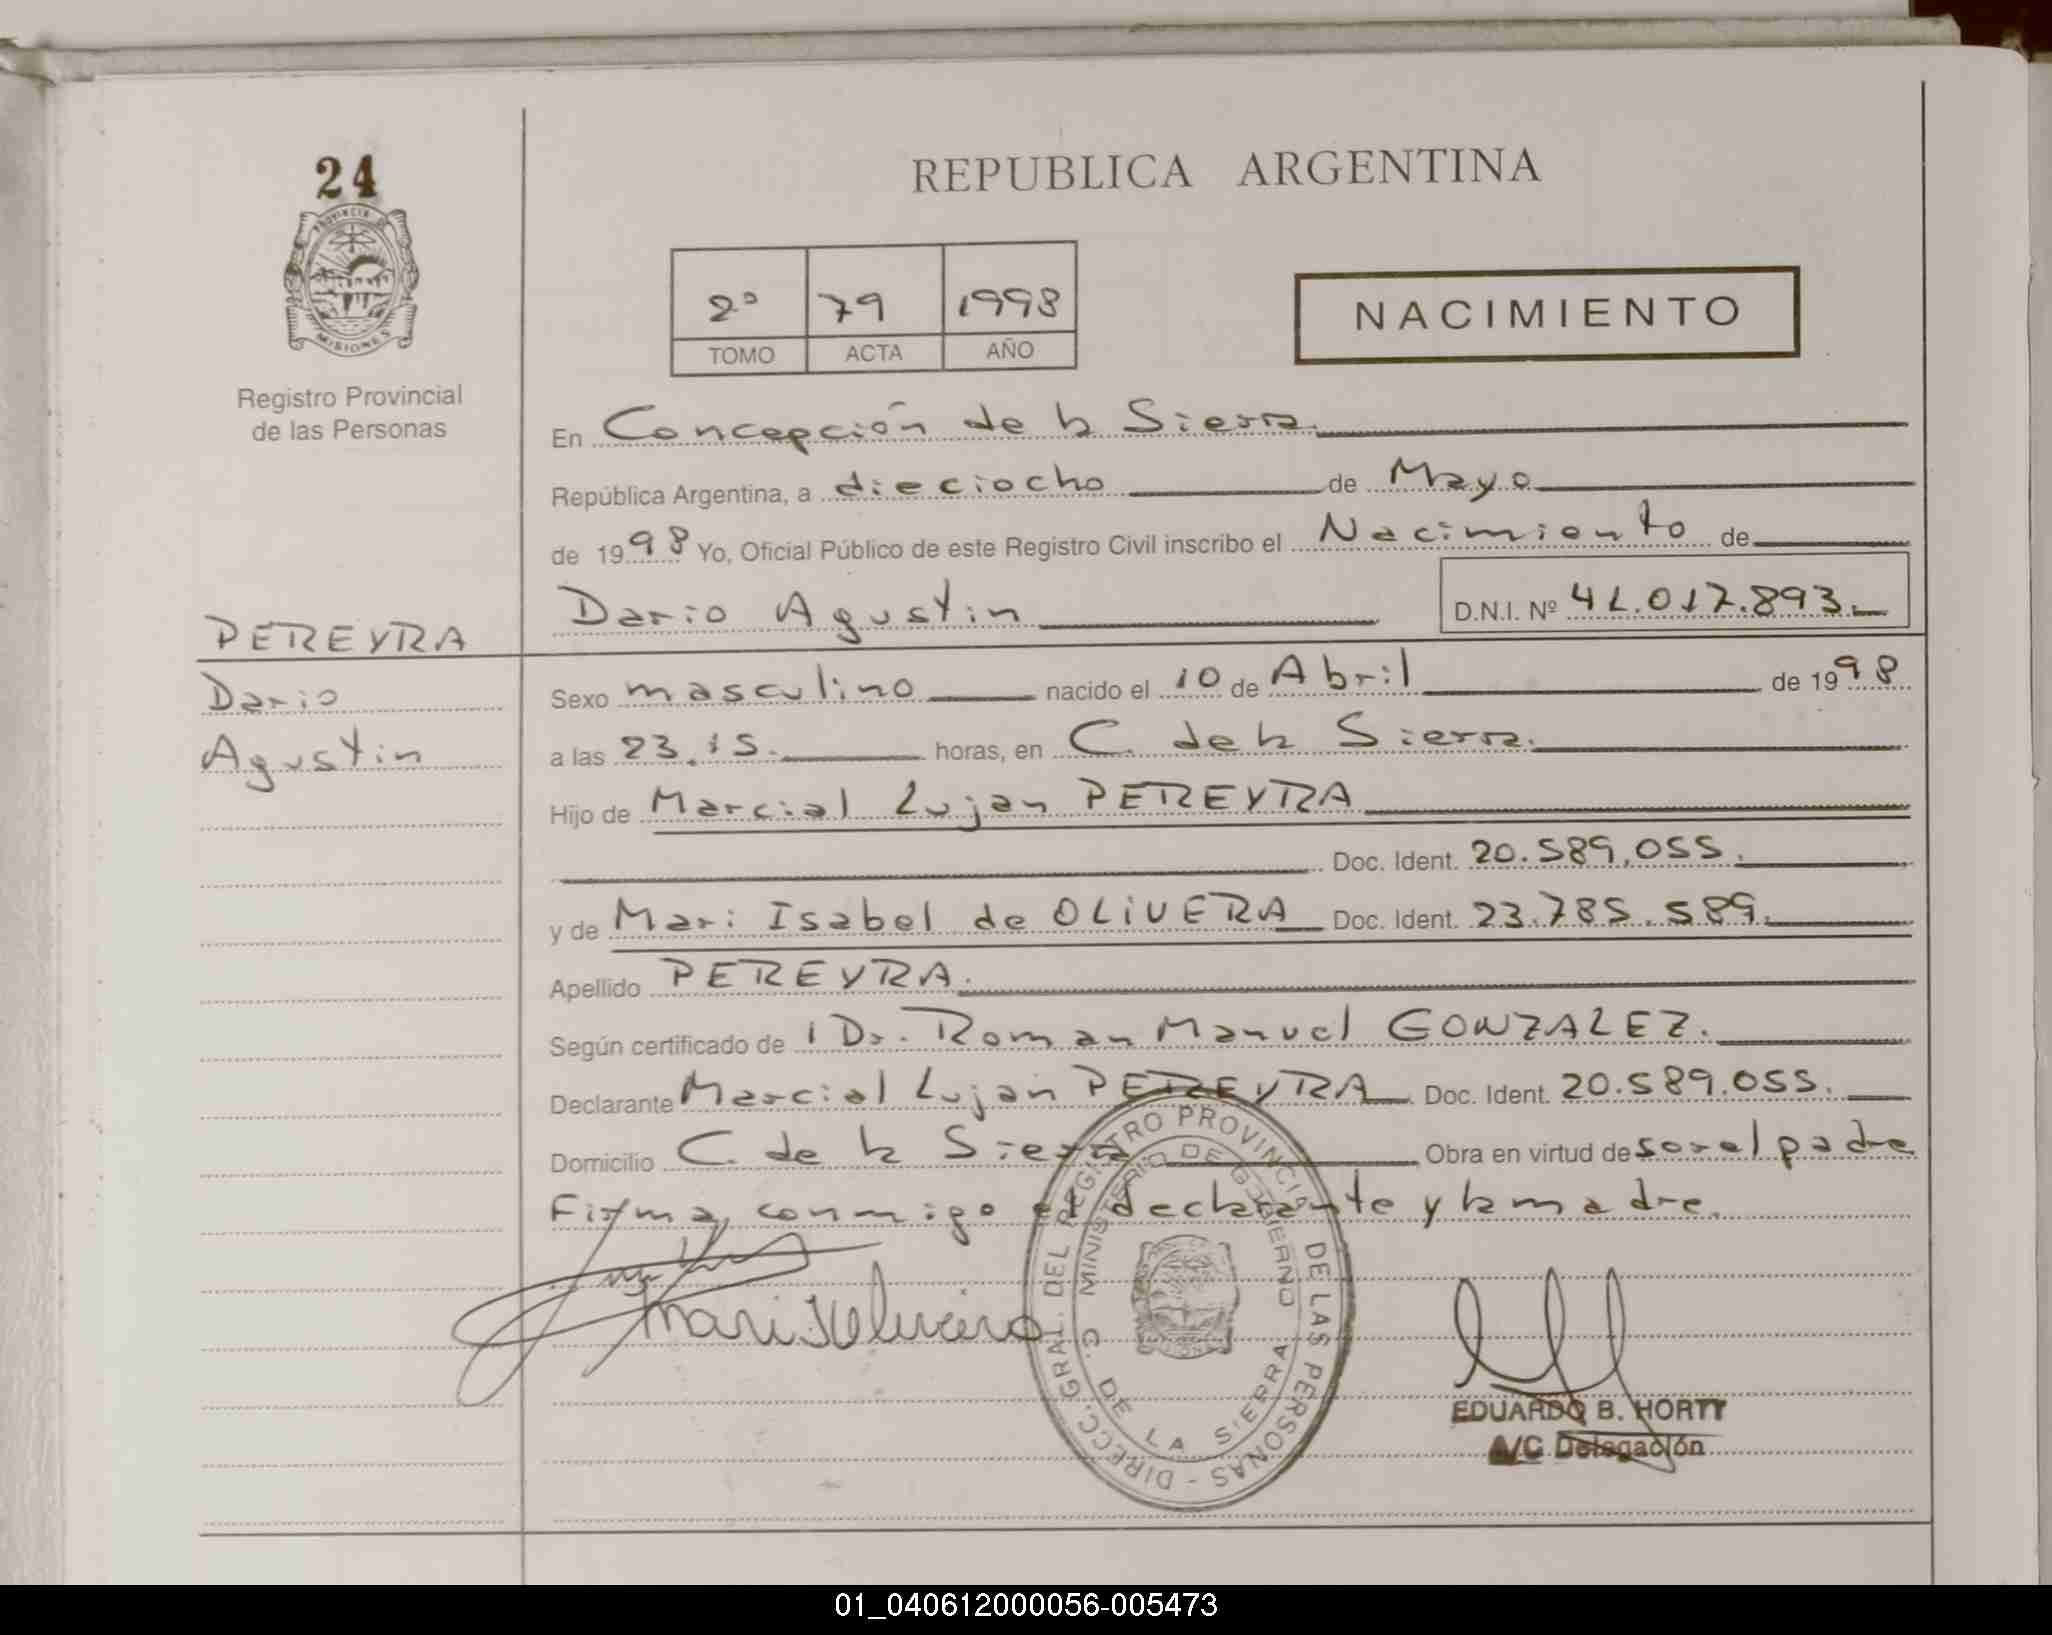 24
PROVINCIA DE
MISIONES
Registro Provincial
de las Personas
PEREYRA
Dario
Agustin
REPUBLICA ARGENTINA
2º 79 1998
TOMO ACTA AÑO
NACIMIENTO
En Concepción de la Sierra.
República Argentina, a dieciocho de Mayo
de 1998 Yo, Oficial Público de este Registro Civil inscribo el Nacimiento de
Dario Agustin D.N.I. Nº 41.017.893.
Sexo masculino nacido el 10 de Abril de 1998
a las 23.15. horas, en C. de la Sierra.
Hijo de Marcial Lujan PEREYRA
Doc. Ident. 20.589.055.
y de Mari Isabel de OLIVERA Doc. Ident. 23.785.589.
Apellido PEREYRA.
Según certificado de Dr. Roman Manuel GONZALEZ.
Declarante Marcial Lujan PEREYRA Doc. Ident. 20.589.055.
Domicilio C. de la Sierra Obra en virtud de ser el padre
Firma, conmigo el declarante y la madre.
DIRECC. GRAL. DEL REGISTRO PROVINCIAL DE LAS PERSONAS -
MINISTERIO DE GOBIERNO
C. DE LA SIERRA
EDUARDO B. HORTT
A/C Delegación
01_040612000056-005473